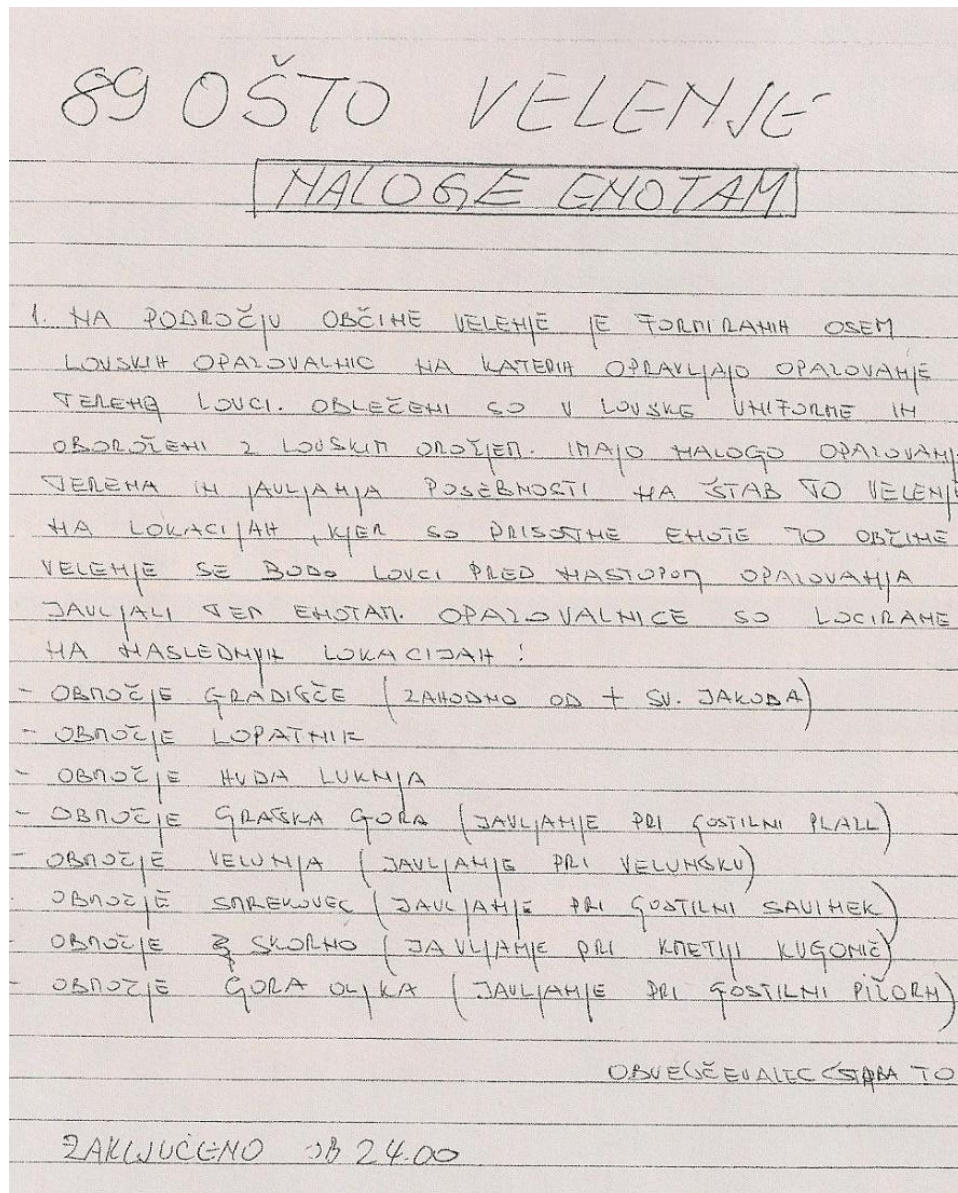 89 OŠTO VELENJE
NALOGE ENOTAM
1. NA PODROČJU OBČINE VELENJE JE FORMIRANIH OSEM
LOVSKIH OPAZOVALNIC NA KATERIH OPRAVLJAJO OPAZOVANJE
TERENA LOVCI. OBLEČENI SO V LOVSKE UNIFORME IN
OBOROŽENI Z LOVSKIM OROŽJEM. IMAJO NALOGO OPAZOVANJ
TERENA IN JAVLJANJA POSEBNOSTI NA ŠTAB TO VELENJE
NA LOKACIJAH, KJER SO PRISOTNE ENOTE TO OBČINE
VELENJE SE BODO LOVCI PRED NASTOPOM OPAZOVANJA
JAVLJALI TEM ENOTAM. OPAZOVALNICE SO LOCIRANE
NA NASLEDNJIH LOKACIJAH:
- OBMOČJE GRADIŠČE (ZAHODNO OD + SV. JAKOBA)
- OBMOČJE LOPATNIK
- OBMOČJE HUDA LUKNJA
- OBMOČJE GRAŠKA GORA (JAVLJANJE PRI GOSTILNI PLALL)
- OBMOČJE VELUNJA (JAVLJANJE PRI VELUNŠKU)
- OBMOČJE SMREKOVEC (JAVLJANJE PRI GOSTILNI SAVINEK)
- OBMOČJE SKORNO (JAVLJANJE PRI KMETIJI KUGONIČ)
- OBMOČJE GORA OLJKA (JAVLJANJE PRI GOSTILNI PIŽORN)
OBVEŠČEVALEC ŠTABA TO
ZAKLJUČENO OB 24.00